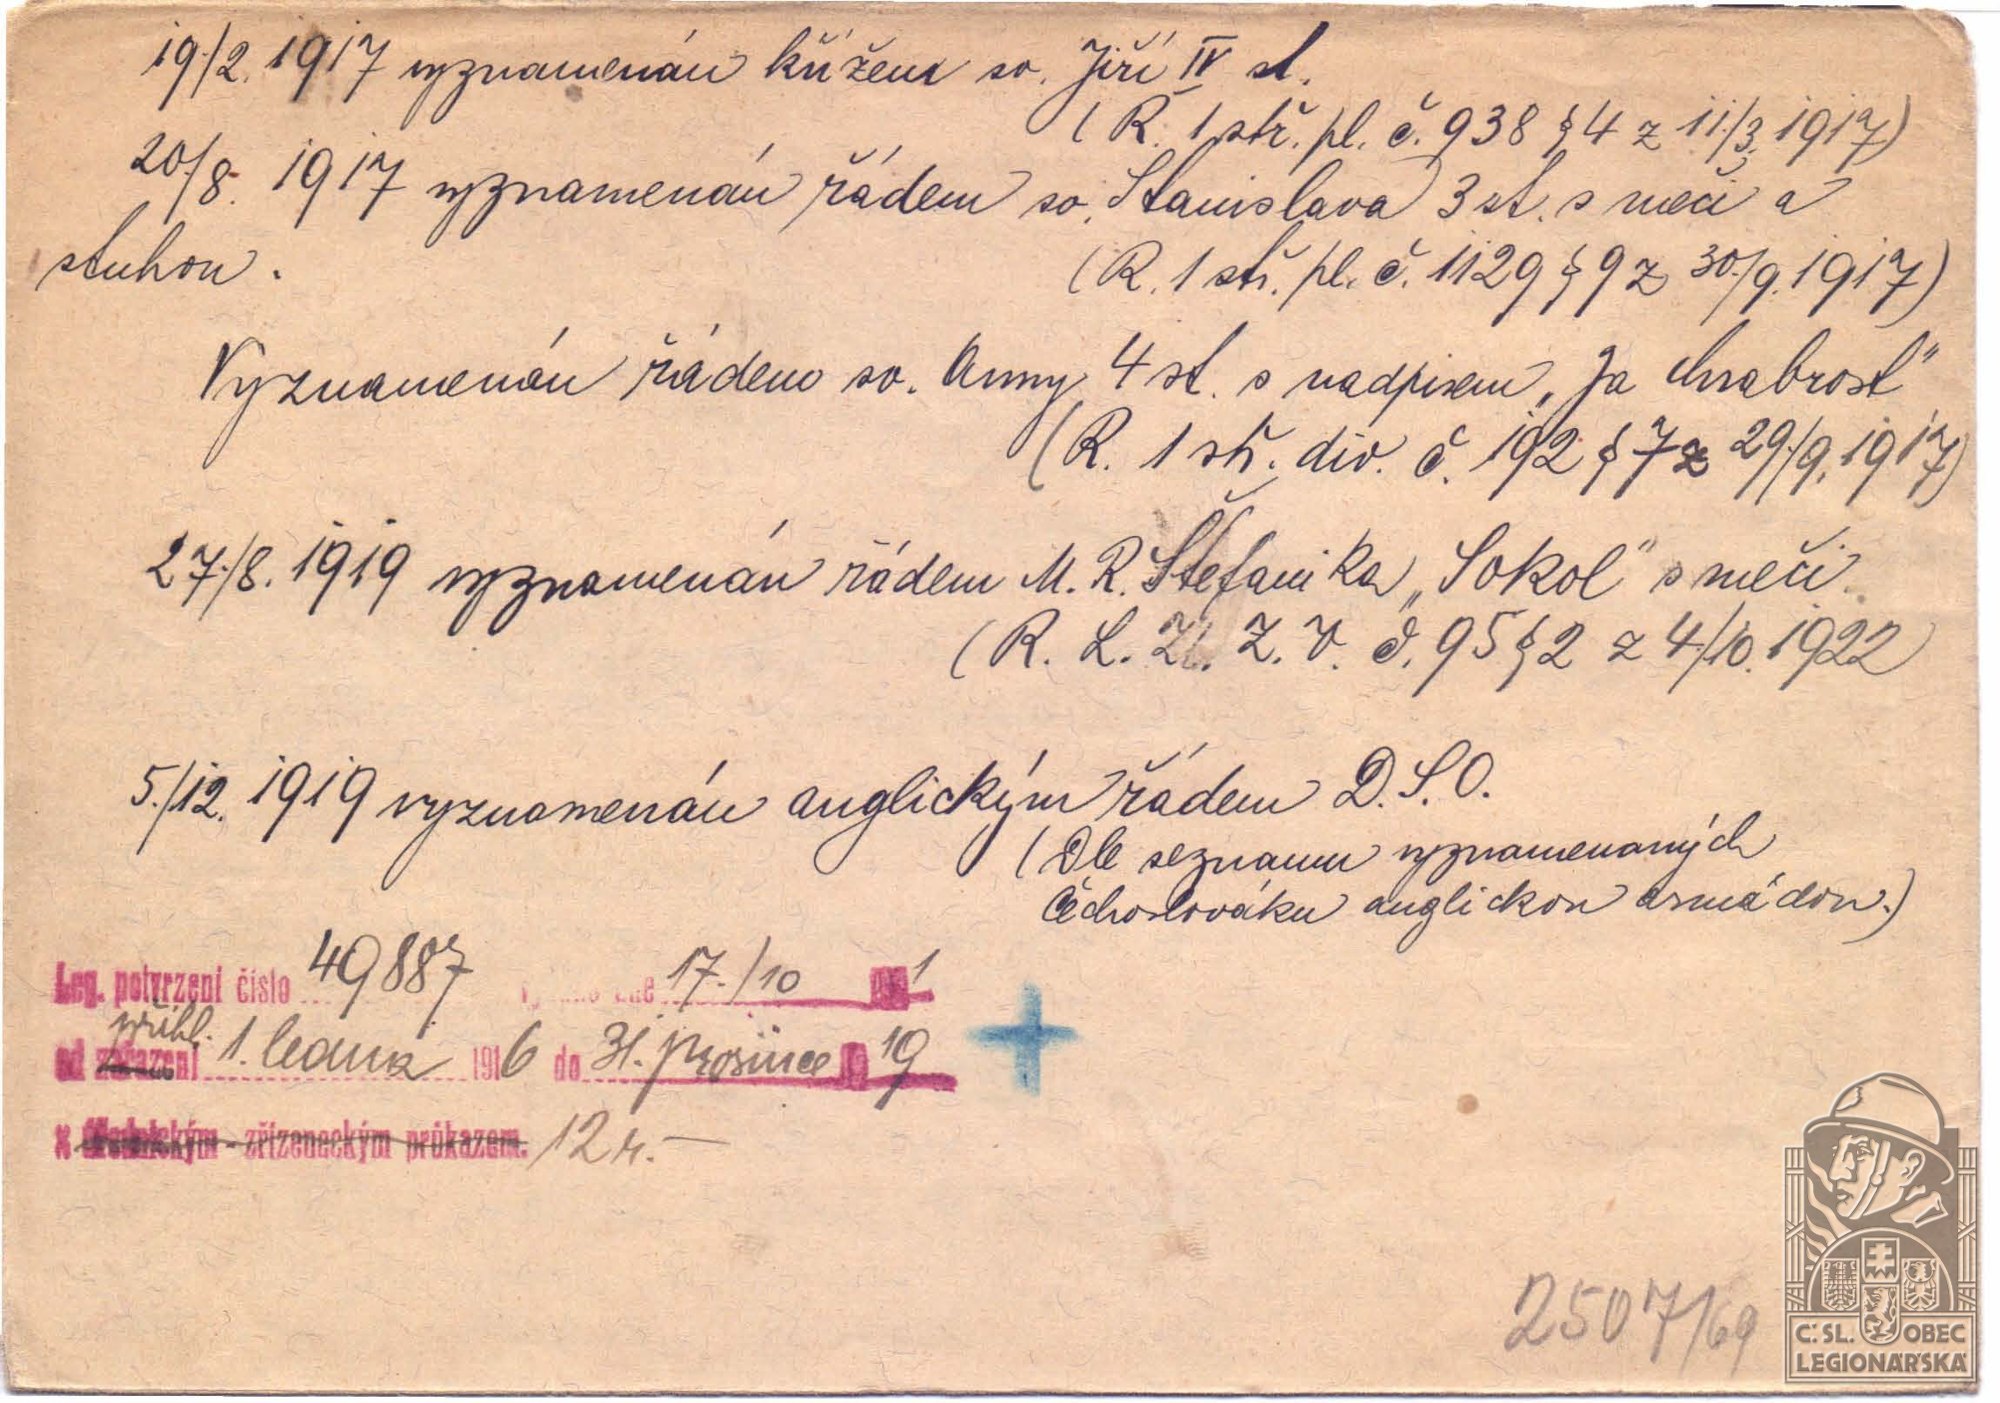 19./2. 1917 vyznamenán křížem sv. Jiří IV st.
(R. 1 stř. pl. č. 938 § 4 z 11./3. 1917)
20./8. 1917 vyznamenán řádem sv. Stanislava 3 st. s meči a
stuhou.
(R. 1 stř. pl. č. 1129 § 9 z 30./9. 1917)
Vyznamenán řádem sv. Anny 4 st. s nadpisem „Za chrabrost"
(R. 1 stř. div. č. 192 § 7 z 29./9. 1917)
27./8. 1919 vyznamenán řádem M. R. Štefanika „Sokol" s meči.
(R. L. Z. V. č. 95 § 2 z 4./10. 1922
5./12. 1919 vyznamenán anglickým řádem D.S.O.
(Dle seznamu vyznamenaných
Čechoslováku anglickou armádou.)
Leg. potvrzení číslo 49887 dne 17./10 1
přihl.
od zařazení 1. ledna 1916 do 31. prosince 19
zřízeneckým průkazem. 12 r.-
2507/69
Č.SL. OBEC
LEGIONÁŘSKÁ